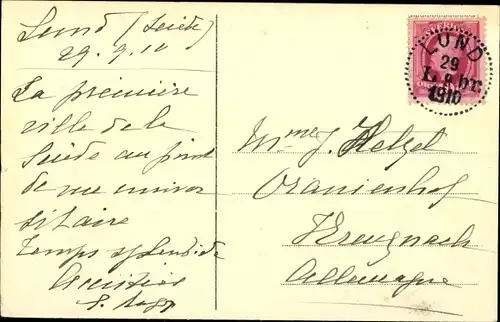 Lund (Suède)
29.9.10
La première
ville de la
Suède au point
de vue univer
sitaire
Temps splendide
Amitiés
SVERIGE
LUND
29
1910
Mme J. Hetzel
Oranienhof
Kreuznach
Allemagne